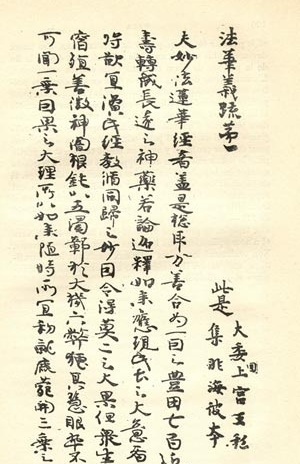 法華義疏第一
此是
大委国上宮王私
集非海彼本
夫妙法蓮華經者盖是惣取万善合為一因之豊田七百近
壽轉成長遠之神藥若論迦釋如来應現此土之大意者
将欲冝演此經教循同歸之妙因令得莫二之大果但衆生
宿殖善微神闇根鈍以五濁鄣於大機六弊掩其慧眼卒不
可聞一乗因果之大理所以如来随時所冝初就鹿菀開三乗之